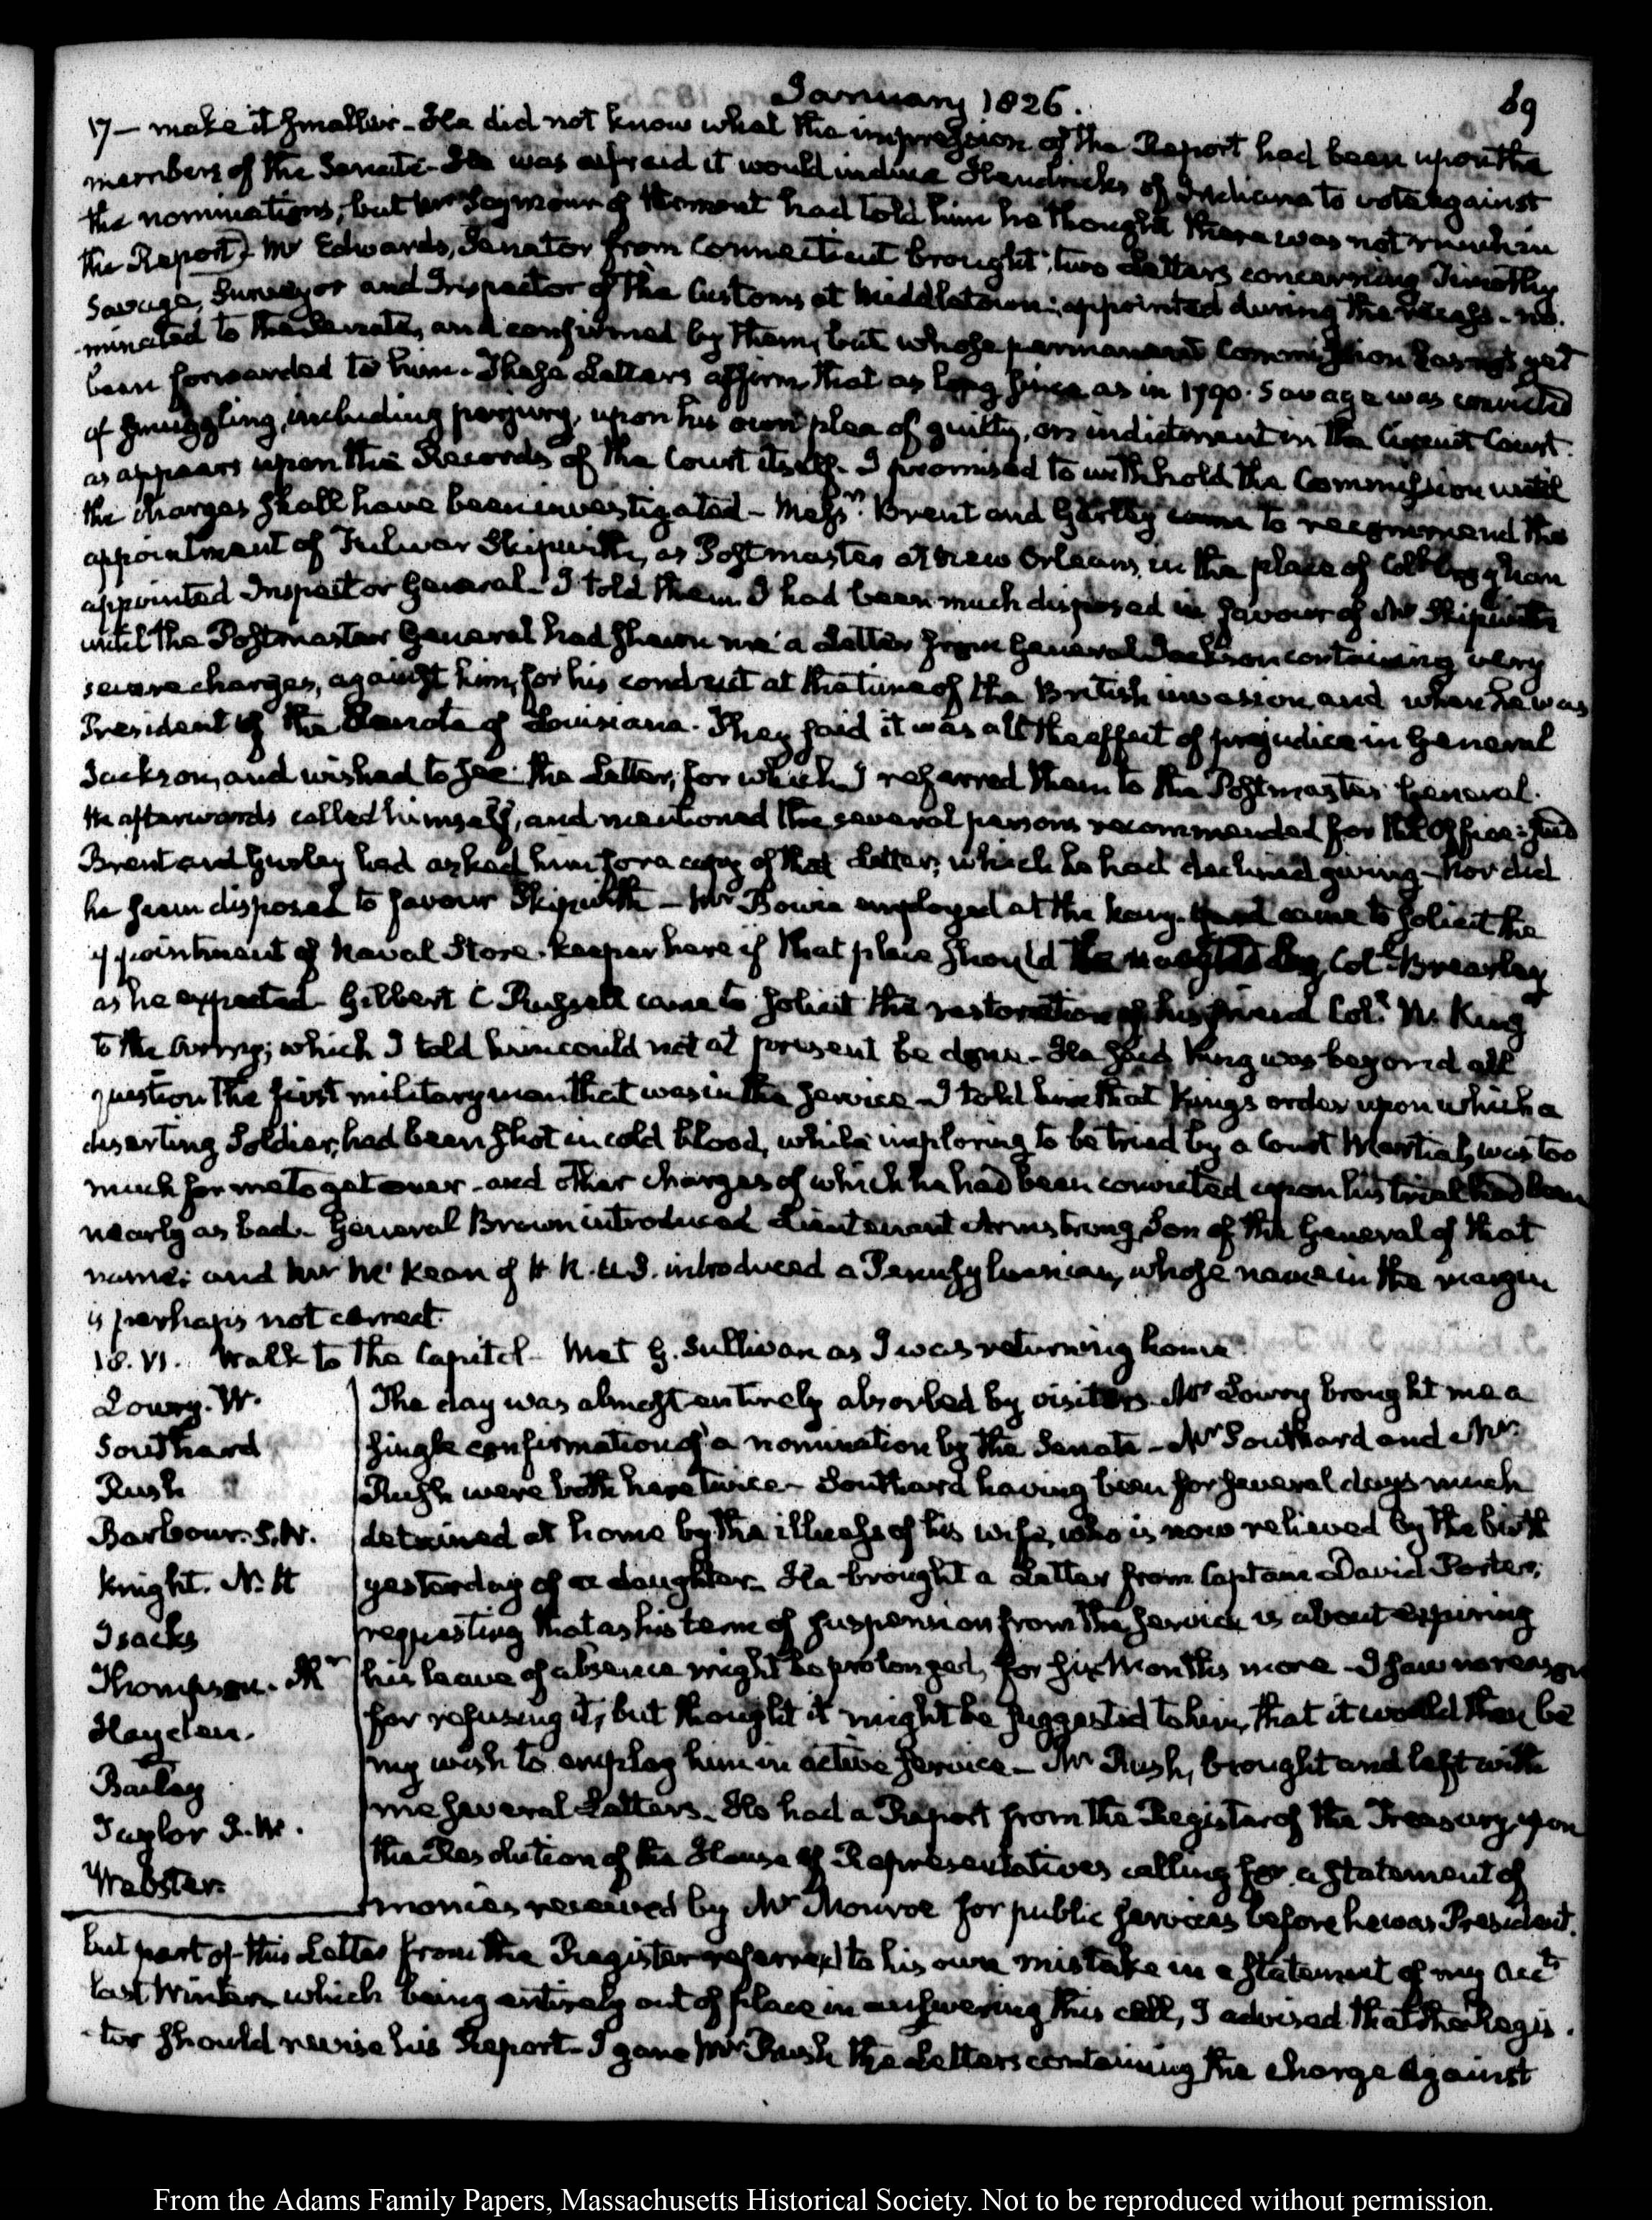 January 1826.
89
17 — make it smaller. He did not know what the impression of the Report had been upon the
members of the Senate. He was afraid it would induce Hendricks of Indiana to vote against
the nominations; but Mr Seymour of Vermont had told him he thought there was not much in
the Report) Mr Edwards, Senator from Connecticut brought two Letters concerning Timothy
Savage, Surveyor and Inspector of the Customs at Middletown; appointed during the recess - no-
-minated to the Senate, and confirmed by them, but whose permanent Commission has not yet
been forwarded to him. These Letters affirm that as long since as in 1790. Savage was convicted
of smuggling, including perjury, upon his own plea of guilty, on indictment in the Circuit Court.
as appears upon the Records of the Court itself. I promised to withhold the Commission until
the charges shall have been investigated - Messrs. Brent and Gurley came to recommend the
appointment of Fulwar Skipwith, as Postmaster at New Orleans, in the place of Coll. Croghan
appointed Inspector General. I told them I had been much disposed in favour of Mr Skipwith
until the Postmaster General had shewn me a Letter from General Jackson containing very
severe charges, against him, for his conduct at the time of the British invasion, and when he was
President of the Senate of Louisiana. They said it was all the effect of prejudice in General
Jackson, and wished to see the Letter, for which I referred them to the Postmaster General.
He afterwards called himself, and mentioned the several persons recommended for the Office: said
Brent and Gurley had asked him for a copy of that Letter, which he had declined giving - Nor did
he seem disposed to favour Skipwith - Mr Bowie employed at the Navy-Yard came to solicit the
appointment of Naval Store-keeper here if that place should be vacated by Col. Brearley
as he expected. Gilbert C Russell came to solicit the restoration of his friend Col. W. King
to the Army; which I told him could not at present be done. He said King was beyond all
question the first military man that was in the service - I told him that King's order upon which a
deserting Soldier, had been shot in cold blood, while imploring to be tried by a Court Martial, was too
much for me to get over - and other charges of which he had been convicted upon his trial had been
nearly as bad. General Brown introduced Lieutenant Armstrong Son of the General of that
name; and Mr McKean of H. R. U.S. introduced a Pennsylvanian, whose name in the margin
is perhaps not correct.
18. VI. Walk to the Capitol. Met G. Sullivan as I was returning home.
Lowry. W.
Southard
Rush
Barbour. S.W.
Knight. N. H
Isacks
Thompson. Mr
Hayden.
Bailey
Taylor J. W.
Webster.
The day was almost entirely absorbed by visitors. Mr Lowry brought me a
single confirmation of a nomination by the Senate - Mr Southard and Mr.
Rush were both here twice - Southard having been for several days much
detained at home by the illness of his wife, who is now relieved by the birth
yesterday of a daughter. He brought a Letter from Captain David Porter;
requesting that as his term of suspension from the service is about expiring
his leave of absence might be prolonged, for six Months more - I saw no reason
for refusing it; but thought it might be suggested to him, that it would then be
my wish to employ him in active service - Mr Rush, brought and left with
me several Letters. He had a Report from the Register of the Treasury, upon
the Resolution of the House of Representatives calling for a statement of
monies received by Mr Monroe for public services before he was President.
but part of this Letter from the Register referred to his own mistake in a statement of my acct
last Winter, which being entirely out of place in answering this call, I advised that the Regis-
-ter should revise his Report. I gave Mr Rush the Letters containing the charge against
From the Adams Family Papers, Massachusetts Historical Society. Not to be reproduced without permission.